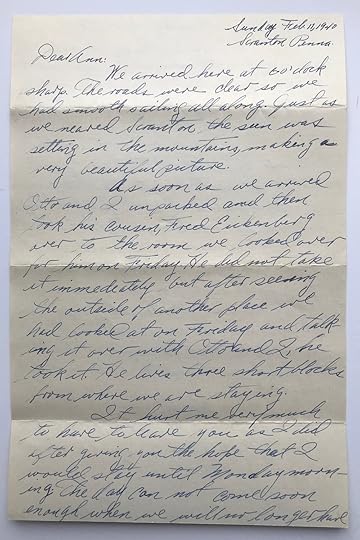 Sunday Feb. 11, 1940
Scranton Penna.
Dear Ann:
We arrived here at 6 o'clock
sharp. The roads were clear so we
had smooth sailing all along. Just as
we neared Scranton the sun was
setting in the mountains, making a
very beautiful picture.
As soon as we arrived
Otto and I unpacked and then
took his cousen, Fred Eickenberg
over to the room we looked over
for him on Friday. He did not take
it immediately but after seeing
the outside of another place we
had looked at on Friday and talk-
ing it over with Otto and I, he
took it. He lives three short blocks
from where we are staying.
It hurt me very much
to have to leave you as I did
after giving you the hope that I
would stay until Monday morn-
ing. The day can not come soon
enough when we will no longer have